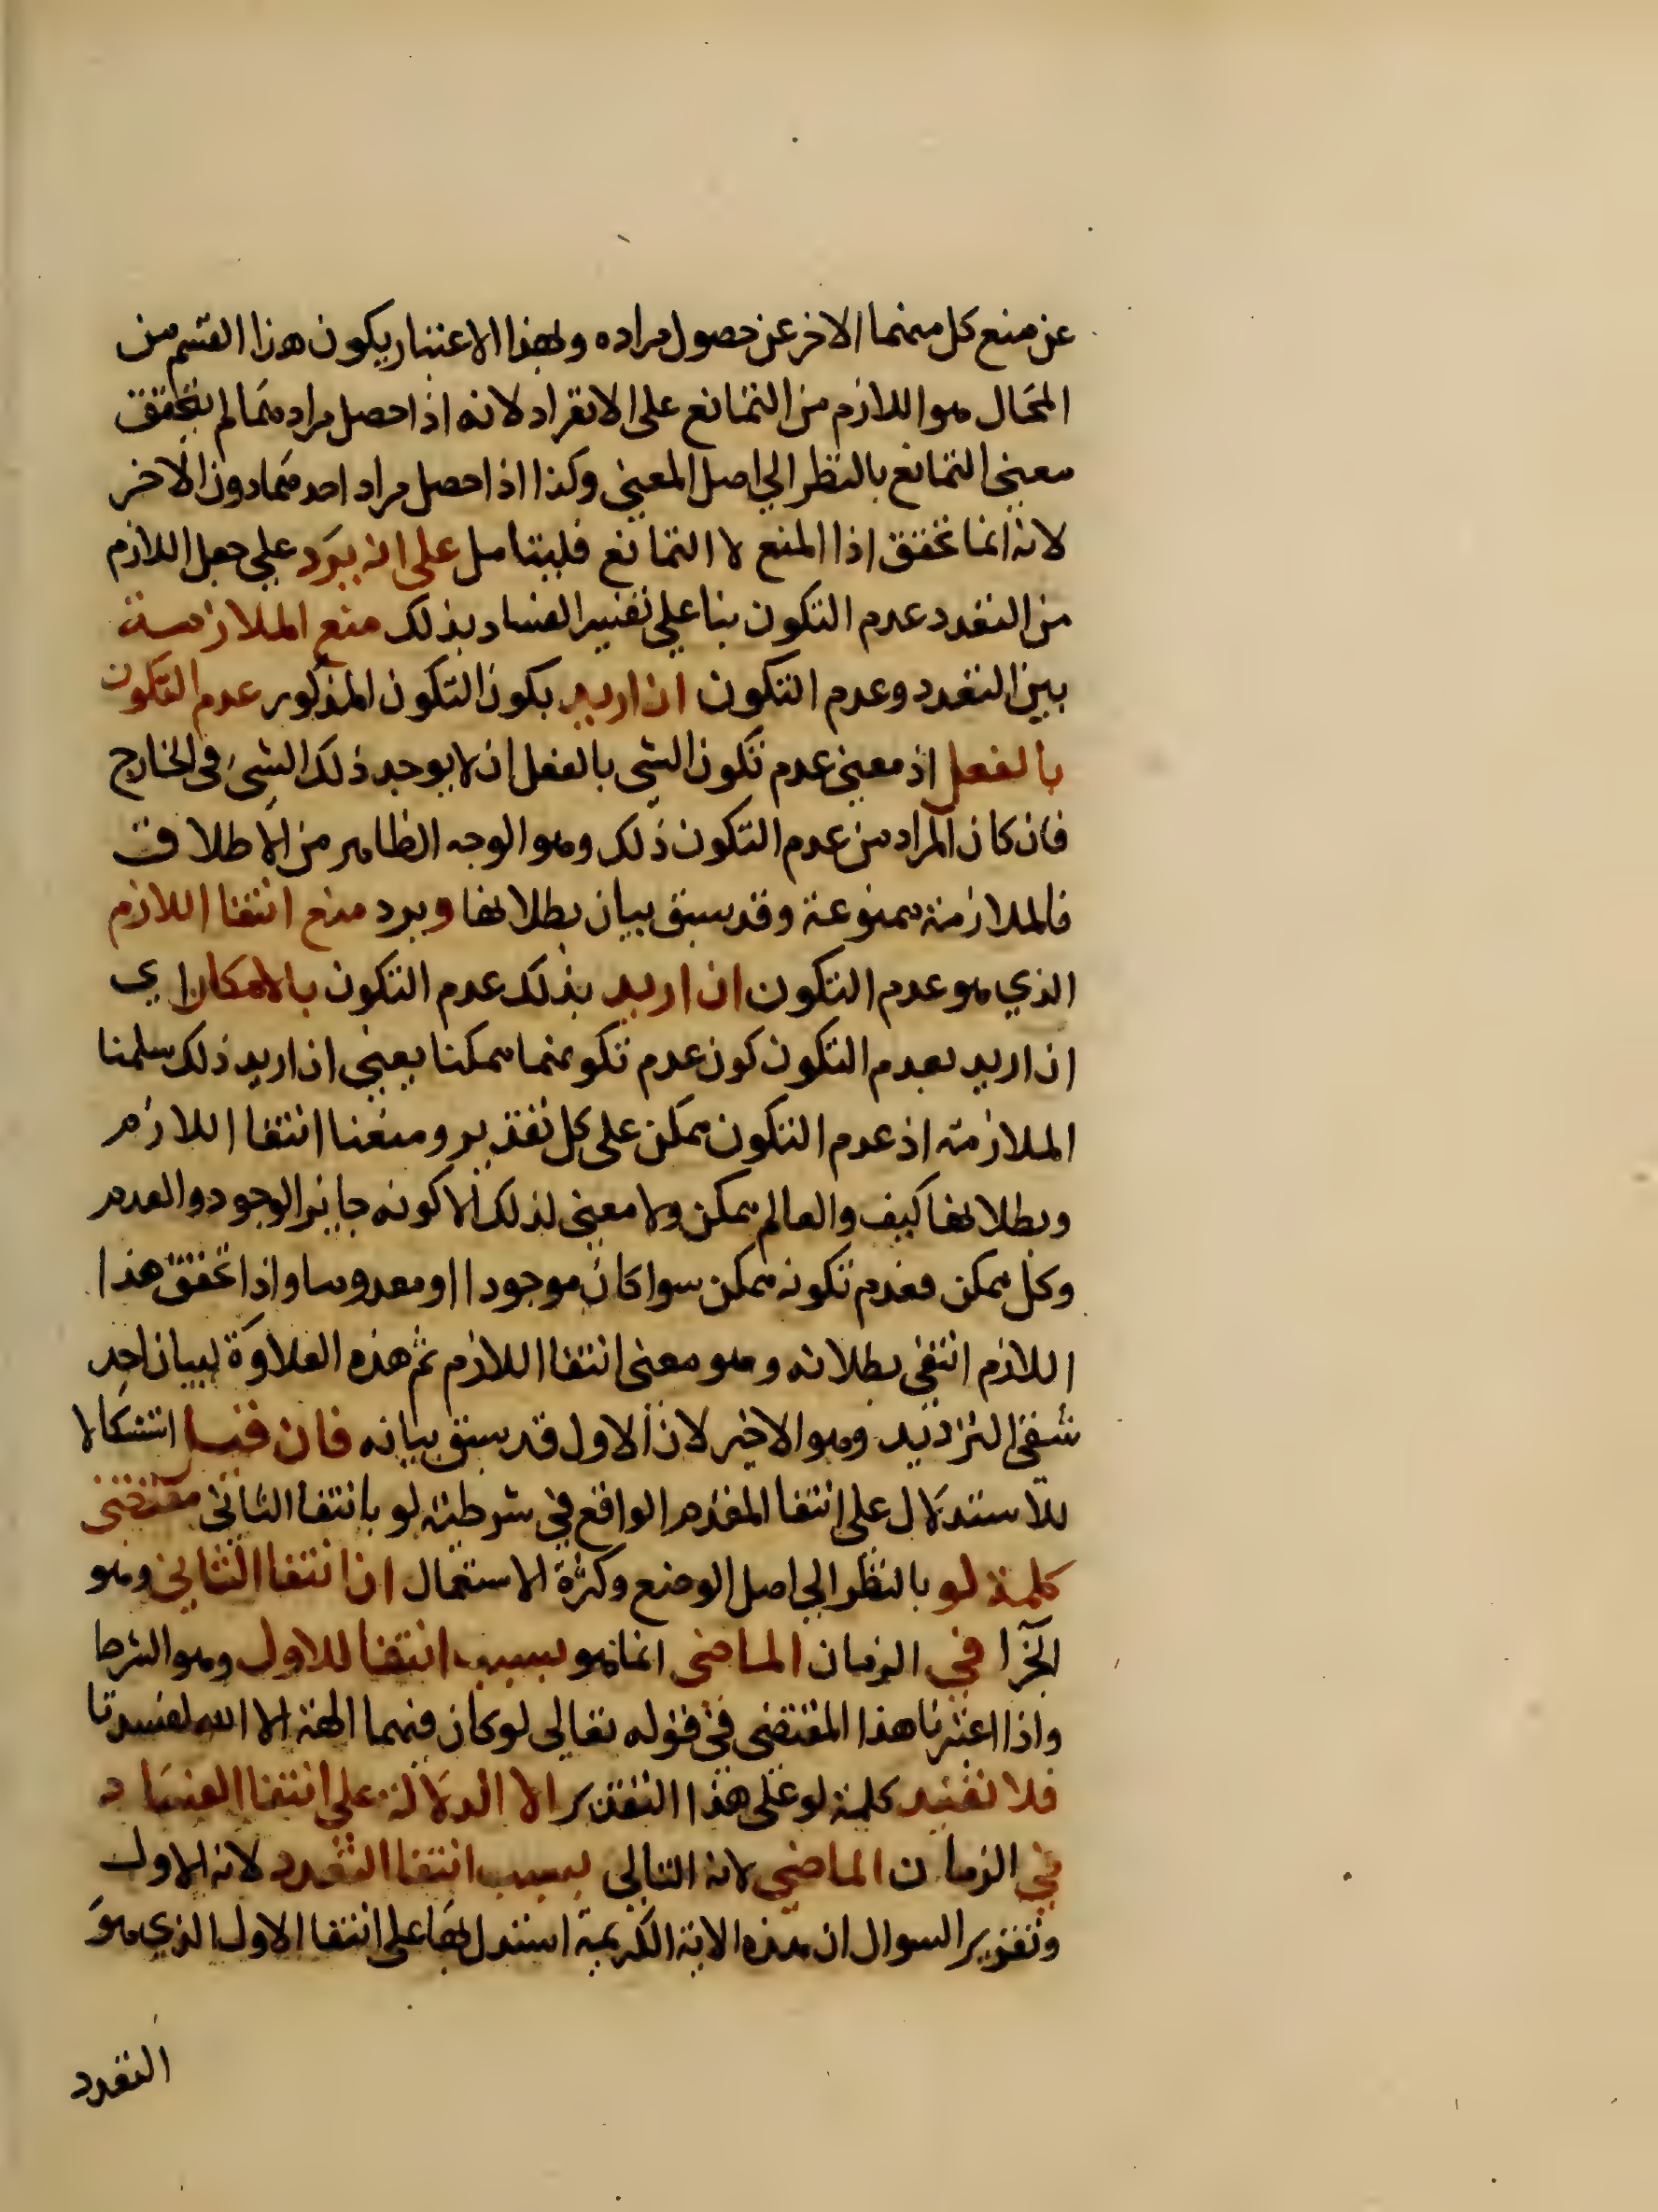 عن منع كل منهما الاخر عن حصول مراده وبهذا الاعتبار يكون هذا القسم من
المحال هو اللازم من التمانع على الانفراد لانه اذا حصل مرادهما لم يتحقق
معنى التمانع بالنظر الي اصل المعني وكذا اذا حصل مراد احدهما دون الاخر
لانه انما تحقق اذا المنع لا التمانع فليتامل على انه يرد علي جعل اللازم
من التعدد عدم التكون بنا علي تفسير الفساد بذلك منع الملازمة
بين التعدد وعدم التكون ان اريد بكون التكون المذكور عدم التكون
بالفعل اذ معنى عدم تكون الشي بالفعل ان لا يوجد ذلك الشئ في الخارج
فان كان المراد من عدم التكون ذلك وهو الوجه الظاهر من الاطلاق
فالملازمة ممنوعة وقد سبق بيان بطلانها ويرد منع انتفا اللازم
الذي هو عدم التكون ان اريد بذلك عدم التكون بالامكان اي
ان اريد بعدم التكون كون عدم تكونهما ممكنا يعني ان اريد ذلك سلمنا
الملازمة اذ عدم التكون ممكن على كل تقدير ومنعنا انتفا اللازم
وبطلانها كيف والعالم ممكن ولا معنى لذلك الا كونه جايز الوجود والعدم
وكل ممكن فعدم تكونه ممكن سوا كان موجودا او معدوما واذا تحقق هذا
اللازم انتفى بطلانه وهو معنى انتفا اللازم ثم هذه العلاوة لبيان احد
شقي الترديد وهو الاخير لان الاول قد سبق بيانه فان قيل استشكالا
للاستدلال على انتفا المقدم الواقع في شرطية لو بانتفا الثاني مقتضى
كلمة لو بالنظر الي اصل الوضع وكثرة الاستعمال ان انتفا الثاني وهو
الجزا في الزمان الماضي انما هو بسبب انتفا للاول وهو الشرط
واذا اعتبرنا هذا المقتضى في قوله تعالى لو كان فيهما الهة الا الله لفسدتا
فلا تفيد كلمة لو على هذا التقدير الا الدلالة على انتفا الفساد
في الزمان الماضي لانه التالي بسبب انتفا التعدد لانه الاول
وتقرير السوال ان هذه الاية الكريمة استدل بها على انتفا الاول الذي هو
التعدد